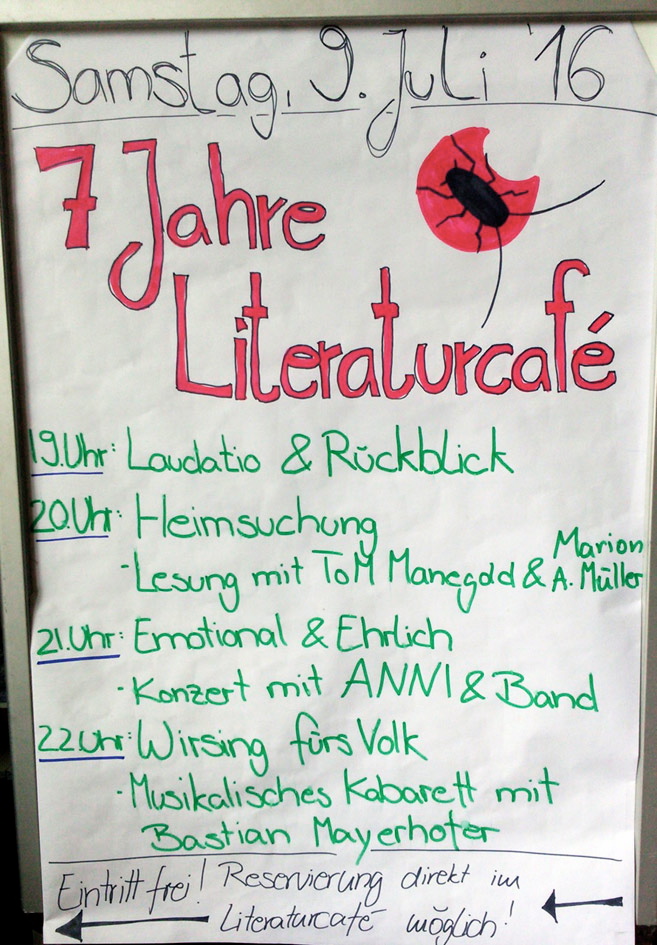 Samstag, 9. Juli '16
7 Jahre
Literaturcafé
19.Uhr: Laudatio & Rückblick
20.Uhr: Heimsuchung
- Lesung mit ToM Manegold & Marion A. Müller
21.Uhr: Emotional & Ehrlich
- Konzert mit ANNI & Band
22.Uhr: Wirsing fürs Volk
- Musikalisches Kabarett mit
Bastian Mayerhofer
Eintritt frei! Reservierung direkt im
Literaturcafé möglich!